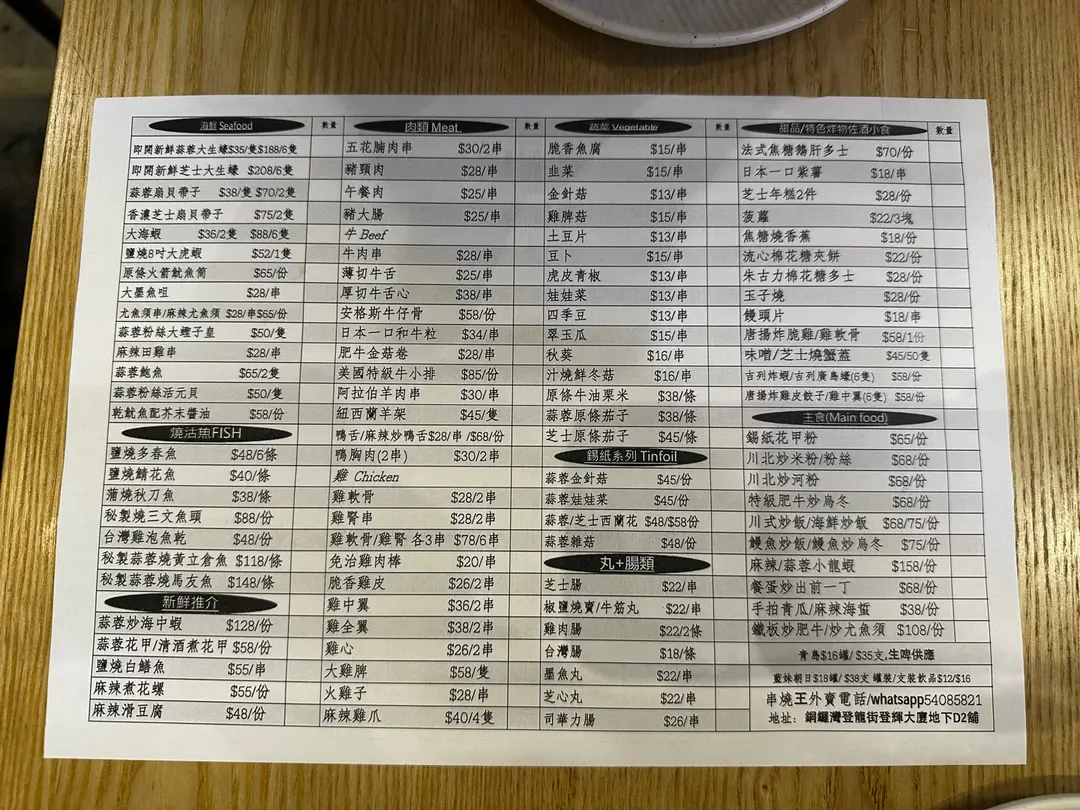 海鮮 Seafood 數量
即開新鮮蒜蓉大生蠔$35/隻$188/6隻
即開新鮮芝士大生蠔 $208/6隻
蒜蓉扇貝帶子 $38/隻 $70/2隻
香濃芝士扇貝帶子 $75/2隻
大海蝦 $36/2隻 $88/6隻
鹽燒8吋大虎蝦 $52/1隻
原條火箭魷魚筒 $65/份
大墨魚咀 $28/串
尤魚須串/麻辣尤魚須 $28/串$65/份
蒜蓉粉絲大蟶子皇 $50/隻
麻辣田雞串 $28/串
蒜蓉鮑魚 $65/2隻
蒜蓉粉絲活元貝 $50/隻
乾魷魚配芥末醬油 $58/份
燒活魚FISH
鹽燒多春魚 $48/6條
鹽燒鯖花魚 $40/條
蒲燒秋刀魚 $38/條
秘製燒三文魚頭 $88/份
台灣雞泡魚乾 $48/份
秘製蒜蓉燒黃立倉魚 $118/條
秘製蒜蓉燒馬友魚 $148/條
新鮮推介
蒜蓉炒海中蝦 $128/份
蒜蓉花甲/清酒煮花甲 $58/份
鹽燒白鱔魚 $55/串
麻辣煮花螺 $55/份
麻辣滑豆腐 $48/份
肉類 Meat 數量
五花腩肉串 $30/2串
豬頸肉 $28/串
午餐肉 $25/串
豬大腸 $25/串
牛 Beef
牛肉串 $28/串
薄切牛舌 $25/串
厚切牛舌心 $38/串
安格斯牛仔骨 $58/份
日本一口和牛粒 $34/串
肥牛金菇卷 $28/串
美國特級牛小排 $85/份
阿拉伯羊肉串 $30/串
紐西蘭羊架 $45/隻
鴨舌/麻辣炒鴨舌$28/串 /$68/份
鴨胸肉(2串) $30/2串
雞 Chicken
雞軟骨 $28/2串
雞腎串 $28/2串
雞軟骨/雞腎 各3串 $78/6串
免治雞肉棒 $20/串
脆香雞皮 $26/2串
雞中翼 $36/2串
雞全翼 $38/2串
雞心 $26/2串
大雞髀 $58/隻
火雞子 $28/串
麻辣雞爪 $40/4隻
蔬菜 Vegetable 數量
脆香魚腐 $15/串
韭菜 $15/串
金針菇 $13/串
雞脾菇 $15/串
土豆片 $13/串
豆卜 $15/串
虎皮青椒 $13/串
娃娃菜 $13/串
四季豆 $13/串
翠玉瓜 $15/串
秋葵 $16/串
汁燒鮮冬菇 $16/串
原條牛油粟米 $38/條
蒜蓉原條茄子 $38/條
芝士原條茄子 $45/條
錫紙系列 Tinfoil
蒜蓉金針菇 $45/份
蒜蓉娃娃菜 $45/份
蒜蓉/芝士西蘭花 $48/$58份
蒜蓉雜菇 $48/份
丸+腸類
芝士腸 $22/串
椒鹽燒賣/牛筋丸 $22/串
雞肉腸 $22/2條
台灣腸 $18/條
墨魚丸 $22/串
芝心丸 $22/串
司華力腸 $26/串
甜品/特色炸物佐酒小食 數量
法式焦糖鵝肝多士 $70/份
日本一口紫薯 $18/串
芝士年糕2件 $28/份
菠蘿 $22/3塊
焦糖燒香蕉 $18/份
流心棉花糖夾餅 $22/份
朱古力棉花糖多士 $28/份
玉子燒 $28/份
饅頭片 $18/串
唐揚炸脆雞/雞軟骨 $58/1份
味噌/芝士燒蟹蓋 $45/50隻
吉列炸蝦/吉列廣島蠔(6隻) $58/份
唐揚炸雞皮餃子/雞中翼(6隻) $58/份
主食(Main food)
錫紙花甲粉 $65/份
川北炒米粉/粉絲 $68/份
川北炒河粉 $68/份
特級肥牛炒烏冬 $68/份
川式炒飯/海鮮炒飯 $68/75/份
鰻魚炒飯/鰻魚炒烏冬 $75/份
麻辣/蒜蓉小龍蝦 $158/份
餐蛋炒出前一丁 $68/份
手拍青瓜/麻辣海蜇 $38/份
鐵板炒肥牛/炒尤魚須 $108/份
青島$16罐/ $35支,生啤供應
藍妹朝日$18罐/ $38支 罐裝/支裝飲品$12/$16
串燒王外賣電話/whatsapp54085821
地址: 銅鑼灣登龍街登輝大廈地下D2舖